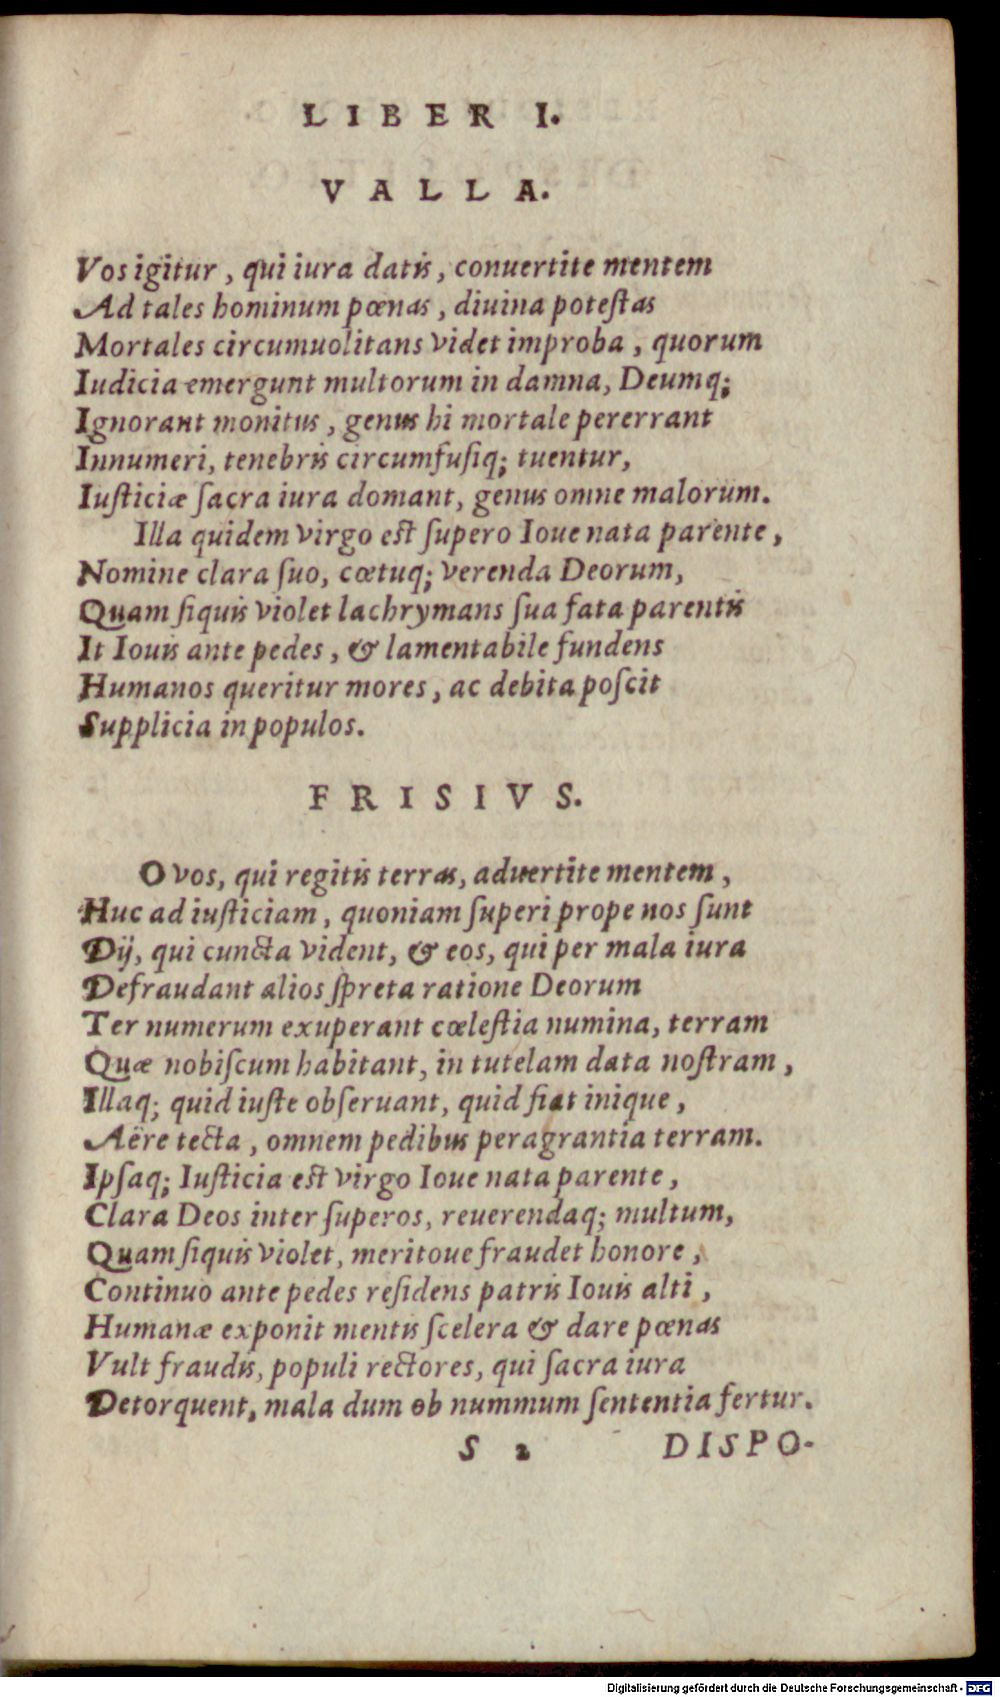 LIBER I.
VALLA.
Vos igitur, qui iura datis, conuertite mentem
Ad tales hominum pœnas, diuina potestas
Mortales circumuolitans videt improba, quorum
Iudicia emergunt multorum in damna, Deumq;
Ignorant monitus, genus hi mortale pererrant
Innumeri, tenebris circumfusiq; tuentur,
Iusticiæ sacra iura domant, genus omne malorum.
Illa quidem virgo est supero Ioue nata parente,
Nomine clara suo, cœtuq; verenda Deorum,
Quam siquis violet lachrymans sua fata parentis
It Iouis ante pedes, & lamentabile fundens
Humanos queritur mores, ac debita poscit
Supplicia in populos.
FRISIVS.
O vos, qui regitis terras, aduertite mentem,
Huc ad iusticiam, quoniam superi prope nos sunt
Dij, qui cuncta vident, & eos, qui per mala iura
Defraudant alios spreta ratione Deorum
Ter numerum exuperant cœlestia numina, terram
Quæ nobiscum habitant, in tutelam data nostram,
Illaq; quid iuste obseruant, quid fiat inique,
Aëre tecta, omnem pedibus peragrantia terram.
Ipsaq; Iusticia est virgo Ioue nata parente,
Clara Deos inter superos, reuerendaq; multum,
Quam siquis violet, meritoue fraudet honore,
Continuo ante pedes residens patris Iouis alti,
Humanæ exponit mentis scelera & dare pœnas
Vult fraudis, populi rectores, qui sacra iura
Detorquent, mala dum ob nummum sententia fertur.
S 2 DISPO-
Digitalisierung gefördert durch die Deutsche Forschungsgemeinschaft - DFG